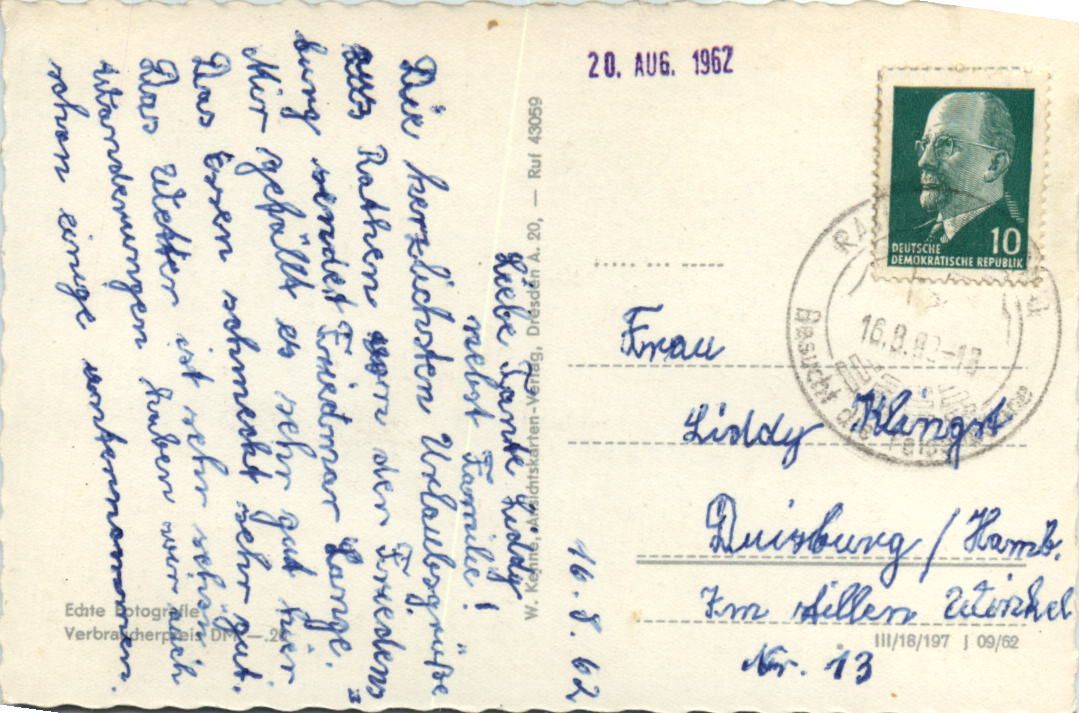 20. AUG. 1962
DEUTSCHE
DEMOKRATISCHE REPUBLIK
10
16.8.62-18
Besucht die
16. 8. 62
Liebe Tante Liddy
nebst Familie!
Die herzlichsten Urlaubsgrüße
aus Rathen vom der Friedens
burg sendet Friedmar Lange.
Mir gefällt es sehr gut hier
Das Essen schmeckt sehr gut.
Das Wetter ist sehr schön
Wanderungen haben wir auch
schon einige unternommen.
Frau
Liddy Klingst
Duisburg / Hamb.
Im stillen Winkel
Nr. 13
W. Kenne, Ansichtskarten-Verlag, Dresden A. 20, — Ruf 43059
Echte Fotografie
Verbraucherpreis DM —.20
III/18/197 J 09/62